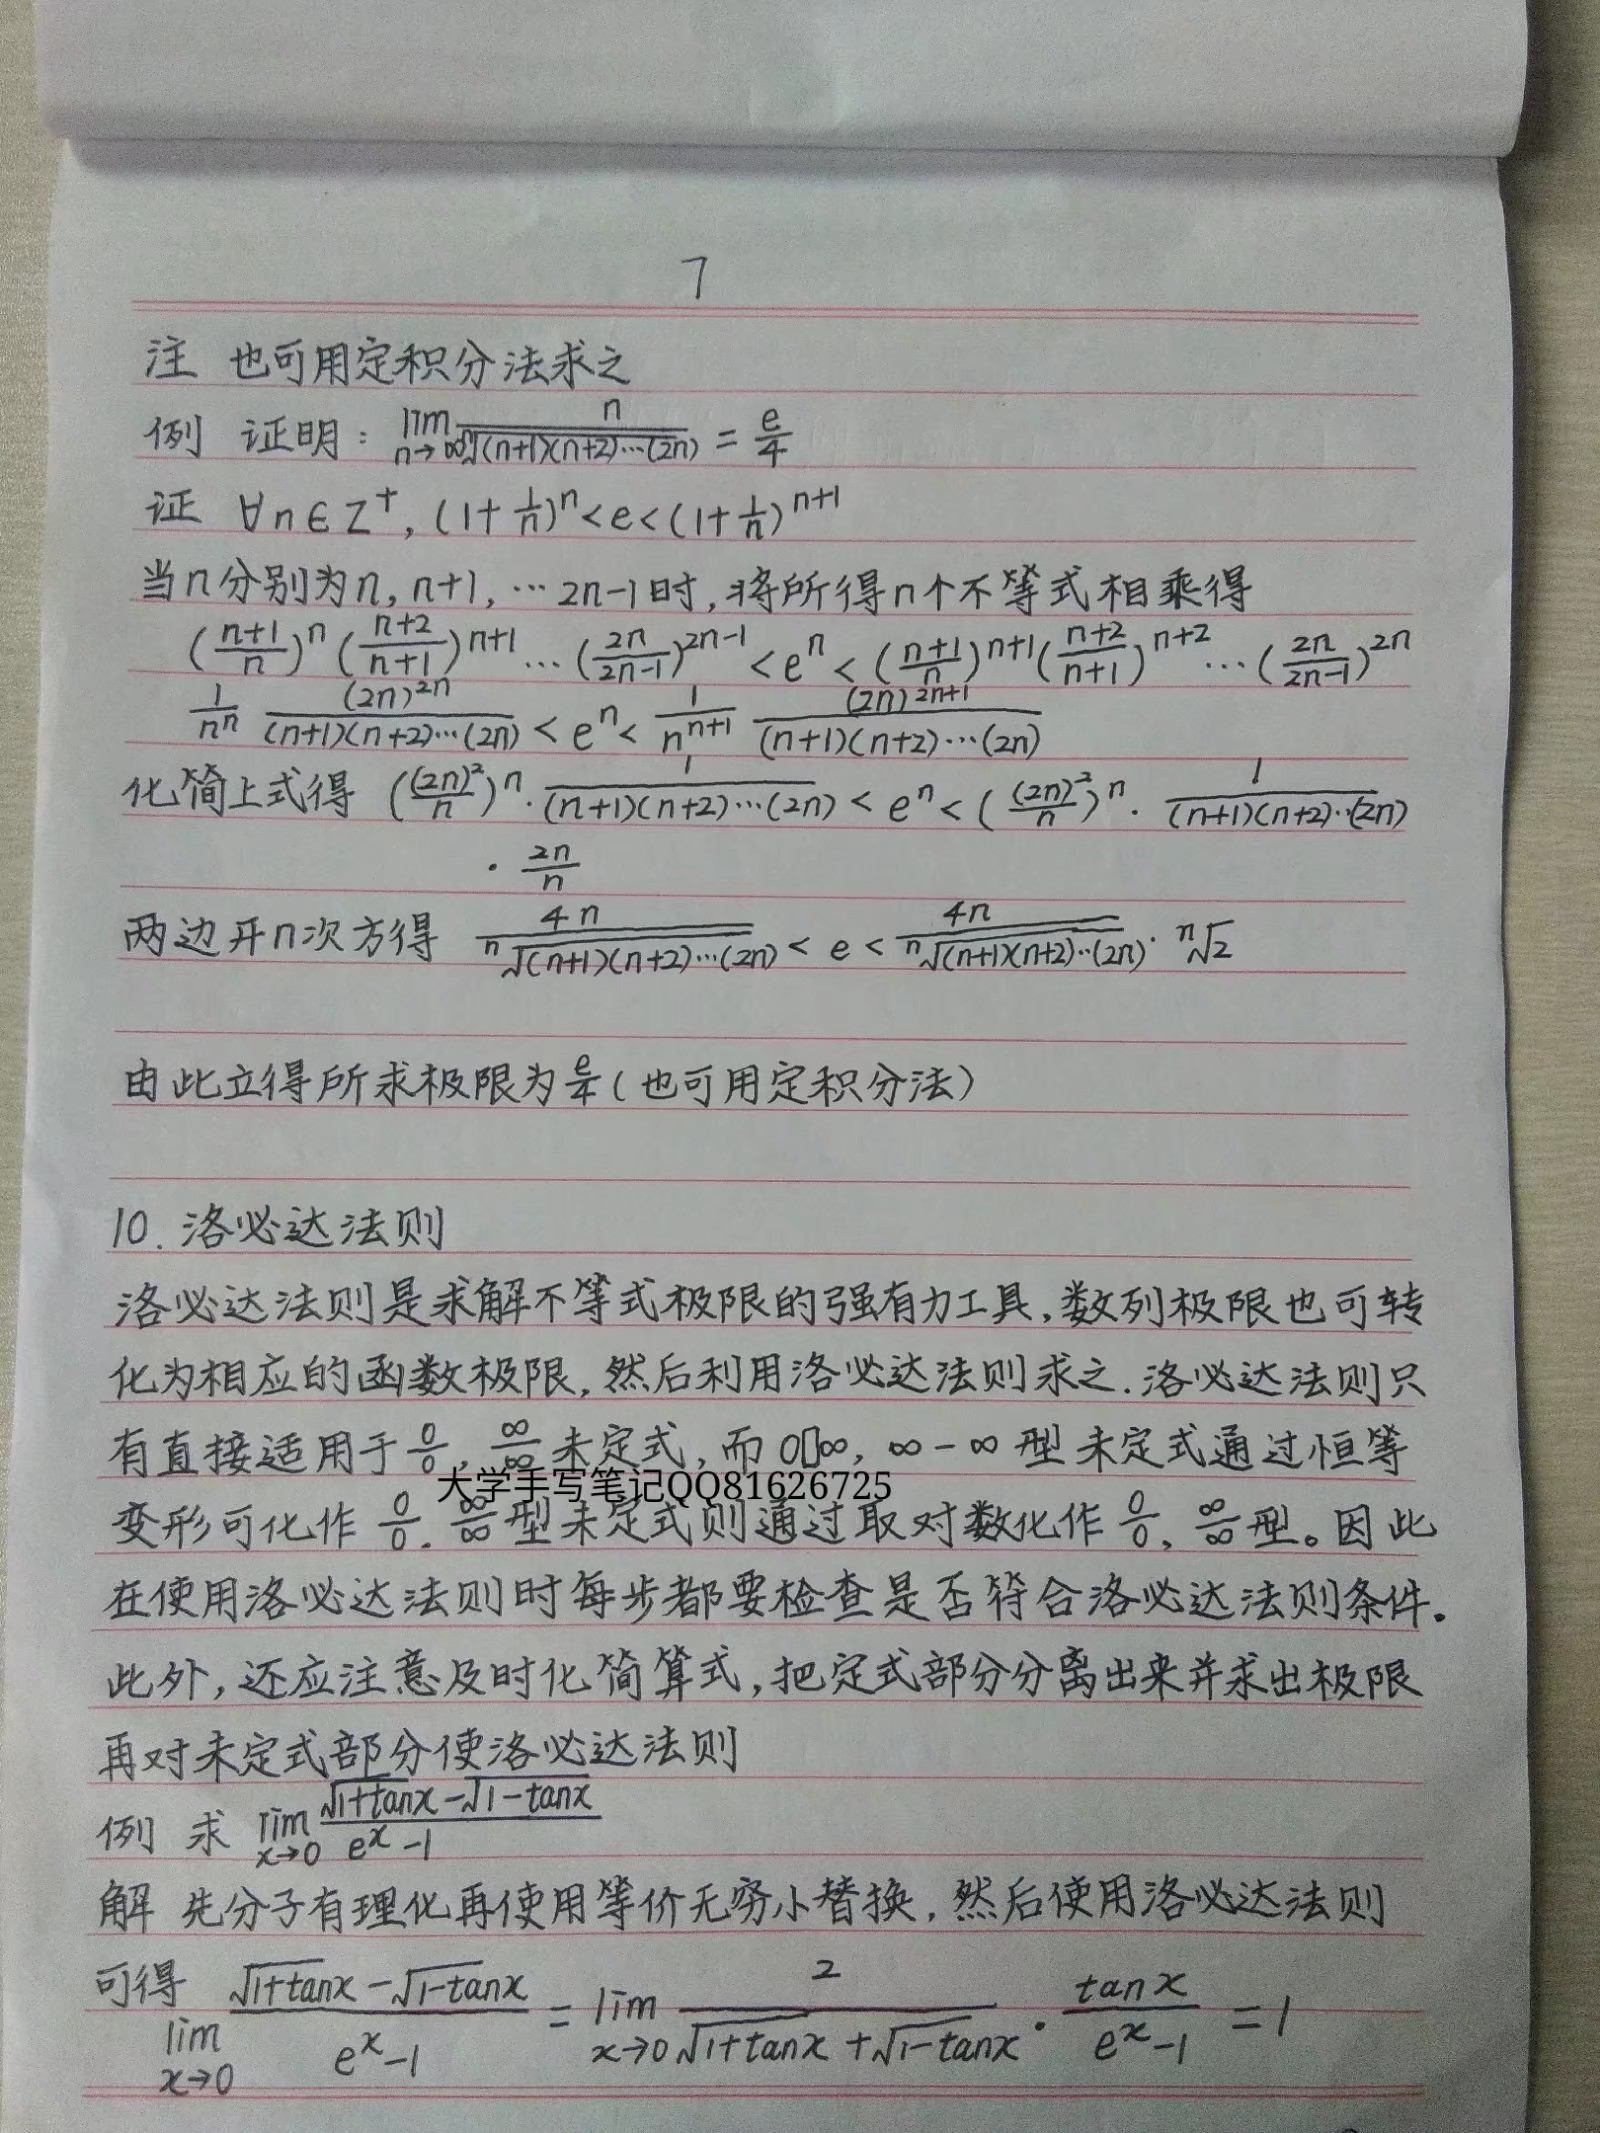 7
注 也可用定积分法求之
例 证明: lim_{n→∞} n/ⁿ√((n+1)(n+2)⋯(2n)) = e/4
证 ∀n∈Z⁺, (1+1/n)^n < e < (1+1/n)^{n+1}
当n分别为n, n+1, ⋯ 2n-1时,将所得n个不等式相乘得
((n+1)/n)^n ((n+2)/(n+1))^{n+1} ⋯ (2n/(2n-1))^{2n-1} < e^n < ((n+1)/n)^{n+1} ((n+2)/(n+1))^{n+2} ⋯ (2n/(2n-1))^{2n}
1/n^n (2n)^{2n}/((n+1)(n+2)⋯(2n)) < e^n < 1/n^{n+1} (2n)^{2n+1}/((n+1)(n+2)⋯(2n))
化简上式得 ((2n)²/n)^n · 1/((n+1)(n+2)⋯(2n)) < e^n < ((2n)²/n)^n · 1/((n+1)(n+2)⋯(2n))
· 2n/n
两边开n次方得 4n/ⁿ√((n+1)(n+2)⋯(2n)) < e < 4n/ⁿ√((n+1)(n+2)⋯(2n)) · ⁿ√2
由此立得所求极限为e/4(也可用定积分法)
10. 洛必达法则
洛必达法则是求解不等式极限的强有力工具,数列极限也可转
化为相应的函数极限,然后利用洛必达法则求之.洛必达法则只
有直接适用于0/0, ∞/∞未定式,而0▯∞, ∞-∞型未定式通过恒等
大学手写笔记QQ81626725
变形可化作0/0. ∞/∞型未定式则通过取对数化作0/0, ∞/∞型。因此
在使用洛必达法则时每步都要检查是否符合洛必达法则条件.
此外,还应注意及时化简算式,把定式部分分离出来并求出极限
再对未定式部分使洛必达法则
例 求 lim_{x→0} (√(1+tanx)-√(1-tanx))/(e^x-1)
解 先分子有理化再使用等价无穷小替换,然后使用洛必达法则
可得 lim_{x→0} (√(1+tanx)-√(1-tanx))/(e^x-1) = lim_{x→0} 2/(√(1+tanx)+√(1-tanx)) · tanx/(e^x-1) = 1